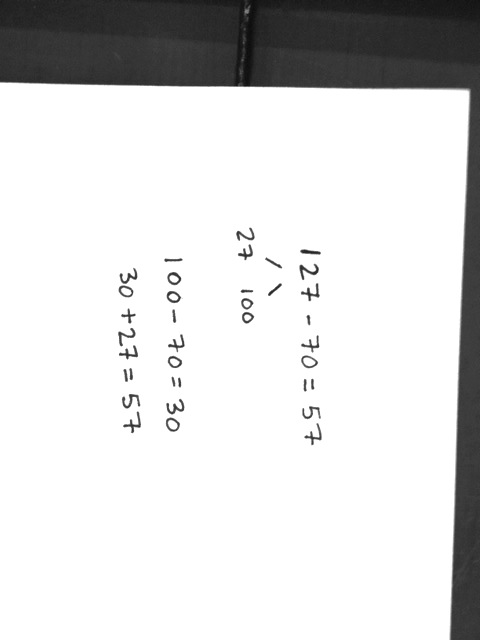 127 - 70 = 57
/ \
27 100
100 - 70 = 30
30 + 27 = 57